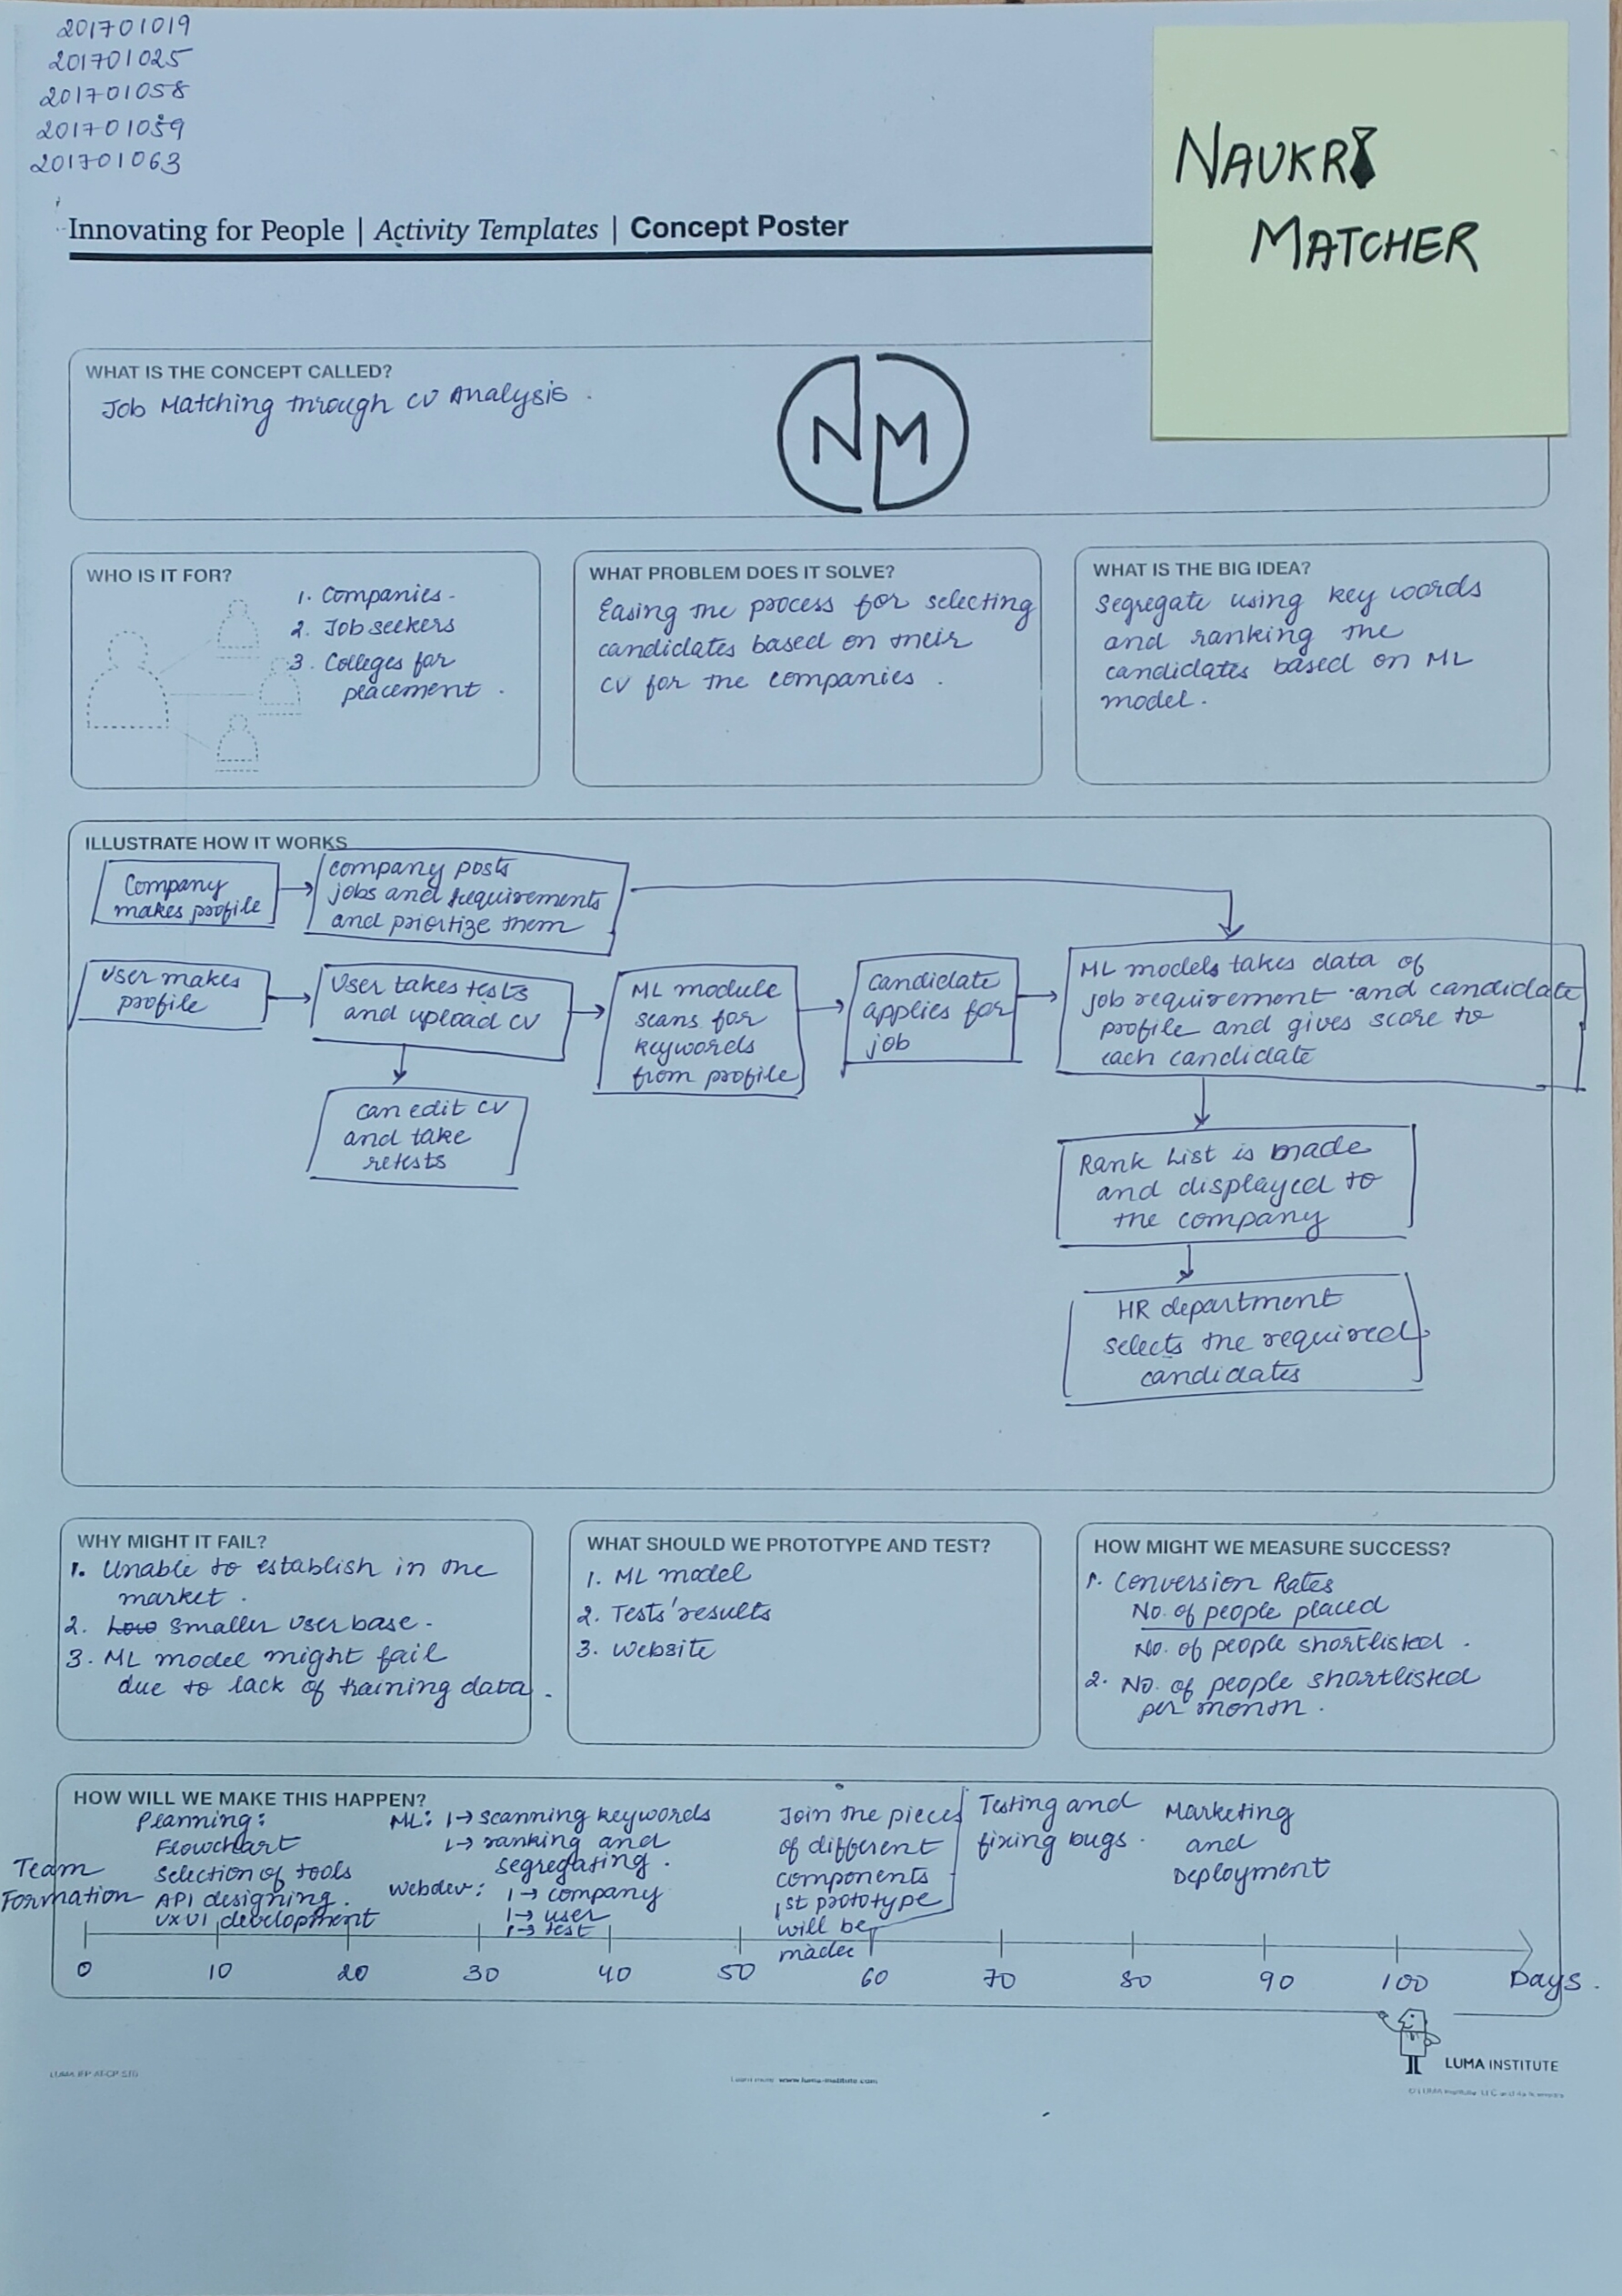 201701019
201701025
201701058
201701059
201701063
NAUKRI
MATCHER
Innovating for People | Activity Templates | Concept Poster
WHAT IS THE CONCEPT CALLED?
Job Matching through CV Analysis.
NM
WHO IS IT FOR?
1. Companies-
2. Job seekers
3. Colleges for
placement.
WHAT PROBLEM DOES IT SOLVE?
Easing the process for selecting
candidates based on their
CV for the companies.
WHAT IS THE BIG IDEA?
Segregate using key words
and ranking the
candidates based on ML
model.
ILLUSTRATE HOW IT WORKS
Company
makes profile
company posts
jobs and requirements
and prioritize them
User makes
profile
User takes tests
and upload CV
can edit CV
and take
retests
ML module
scans for
keywords
from profile
Candidate
applies for
job
ML models takes data of
job requirement and candidate
profile and gives score to
each candidate
Rank List is made
and displayed to
the company
HR department
selects the required
candidates
WHY MIGHT IT FAIL?
1. Unable to establish in the
market.
2. Low smaller user base.
3. ML model might fail
due to lack of training data.
WHAT SHOULD WE PROTOTYPE AND TEST?
1. ML model
2. Tests' results
3. Website
HOW MIGHT WE MEASURE SUCCESS?
1. Conversion Rates
No. of people placed
No. of people shortlisted.
2. No. of people shortlisted
per month.
HOW WILL WE MAKE THIS HAPPEN?
Team
Formation
Planning:
Flowchart
Selection of tools
API designing.
UX UI development
ML: 1→ scanning keywords
1→ ranking and
segregating.
Webdev: 1→ company
1→ user
1→ test
Join the pieces
of different
components
1st prototype
will be
made
Testing and
fixing bugs.
Marketing
and
Deployment
0 10 20 30 40 50 60 70 80 90 100 Days.
LUMA INSTITUTE
Learn more: www.luma-institute.com